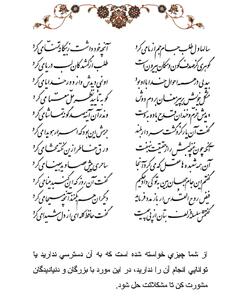 سالها دل طلب جام جم از ما می کرد آنچه خود داشت ز بیگانه تمنا می کرد
گوهری کز صدف کون و مکان بیرون است طلب از گمشدگان لب دریا می کرد
بیدلی در همه احوال خدا با او بود او نمی دیدش و از دور خدایا می کرد
مشکل خویش بر پیر مغان بردم دوش کو به تأیید نظر حل معما می کرد
دیدمش خرم و خندان قدح باده به دست و اندر آن آینه صد گونه تماشا می کرد
گفت آن یار کزو گشت سر دار بلند جرمش این بود که اسرار هویدا می کرد
آنکه چون غنچه دلش راز حقیقت بنهفت ورق خاطر از این نکته محشا می کرد
آن همه شعبده ها عقل که می کرد آنجا ساحری پیش عصا و ید بیضا می کرد
گفتم این جام جهان بین به تو کی داد حکیم گفت آن روز که این گنبد مینا می کرد
دیگران هم بکنند آنچه مسیحا می کرد
گفتمش سلسله زلف بتان از پی چیست گفت حافظ گله ای از دل شیدا می کرد
از شما چیزی خواسته شده است که به آن دسترسی ندارید یا
توانایی انجام آن را ندارید، در این مورد با بزرگان و دنیادیدگان
مشورت کن تا مشکلات حل شود.